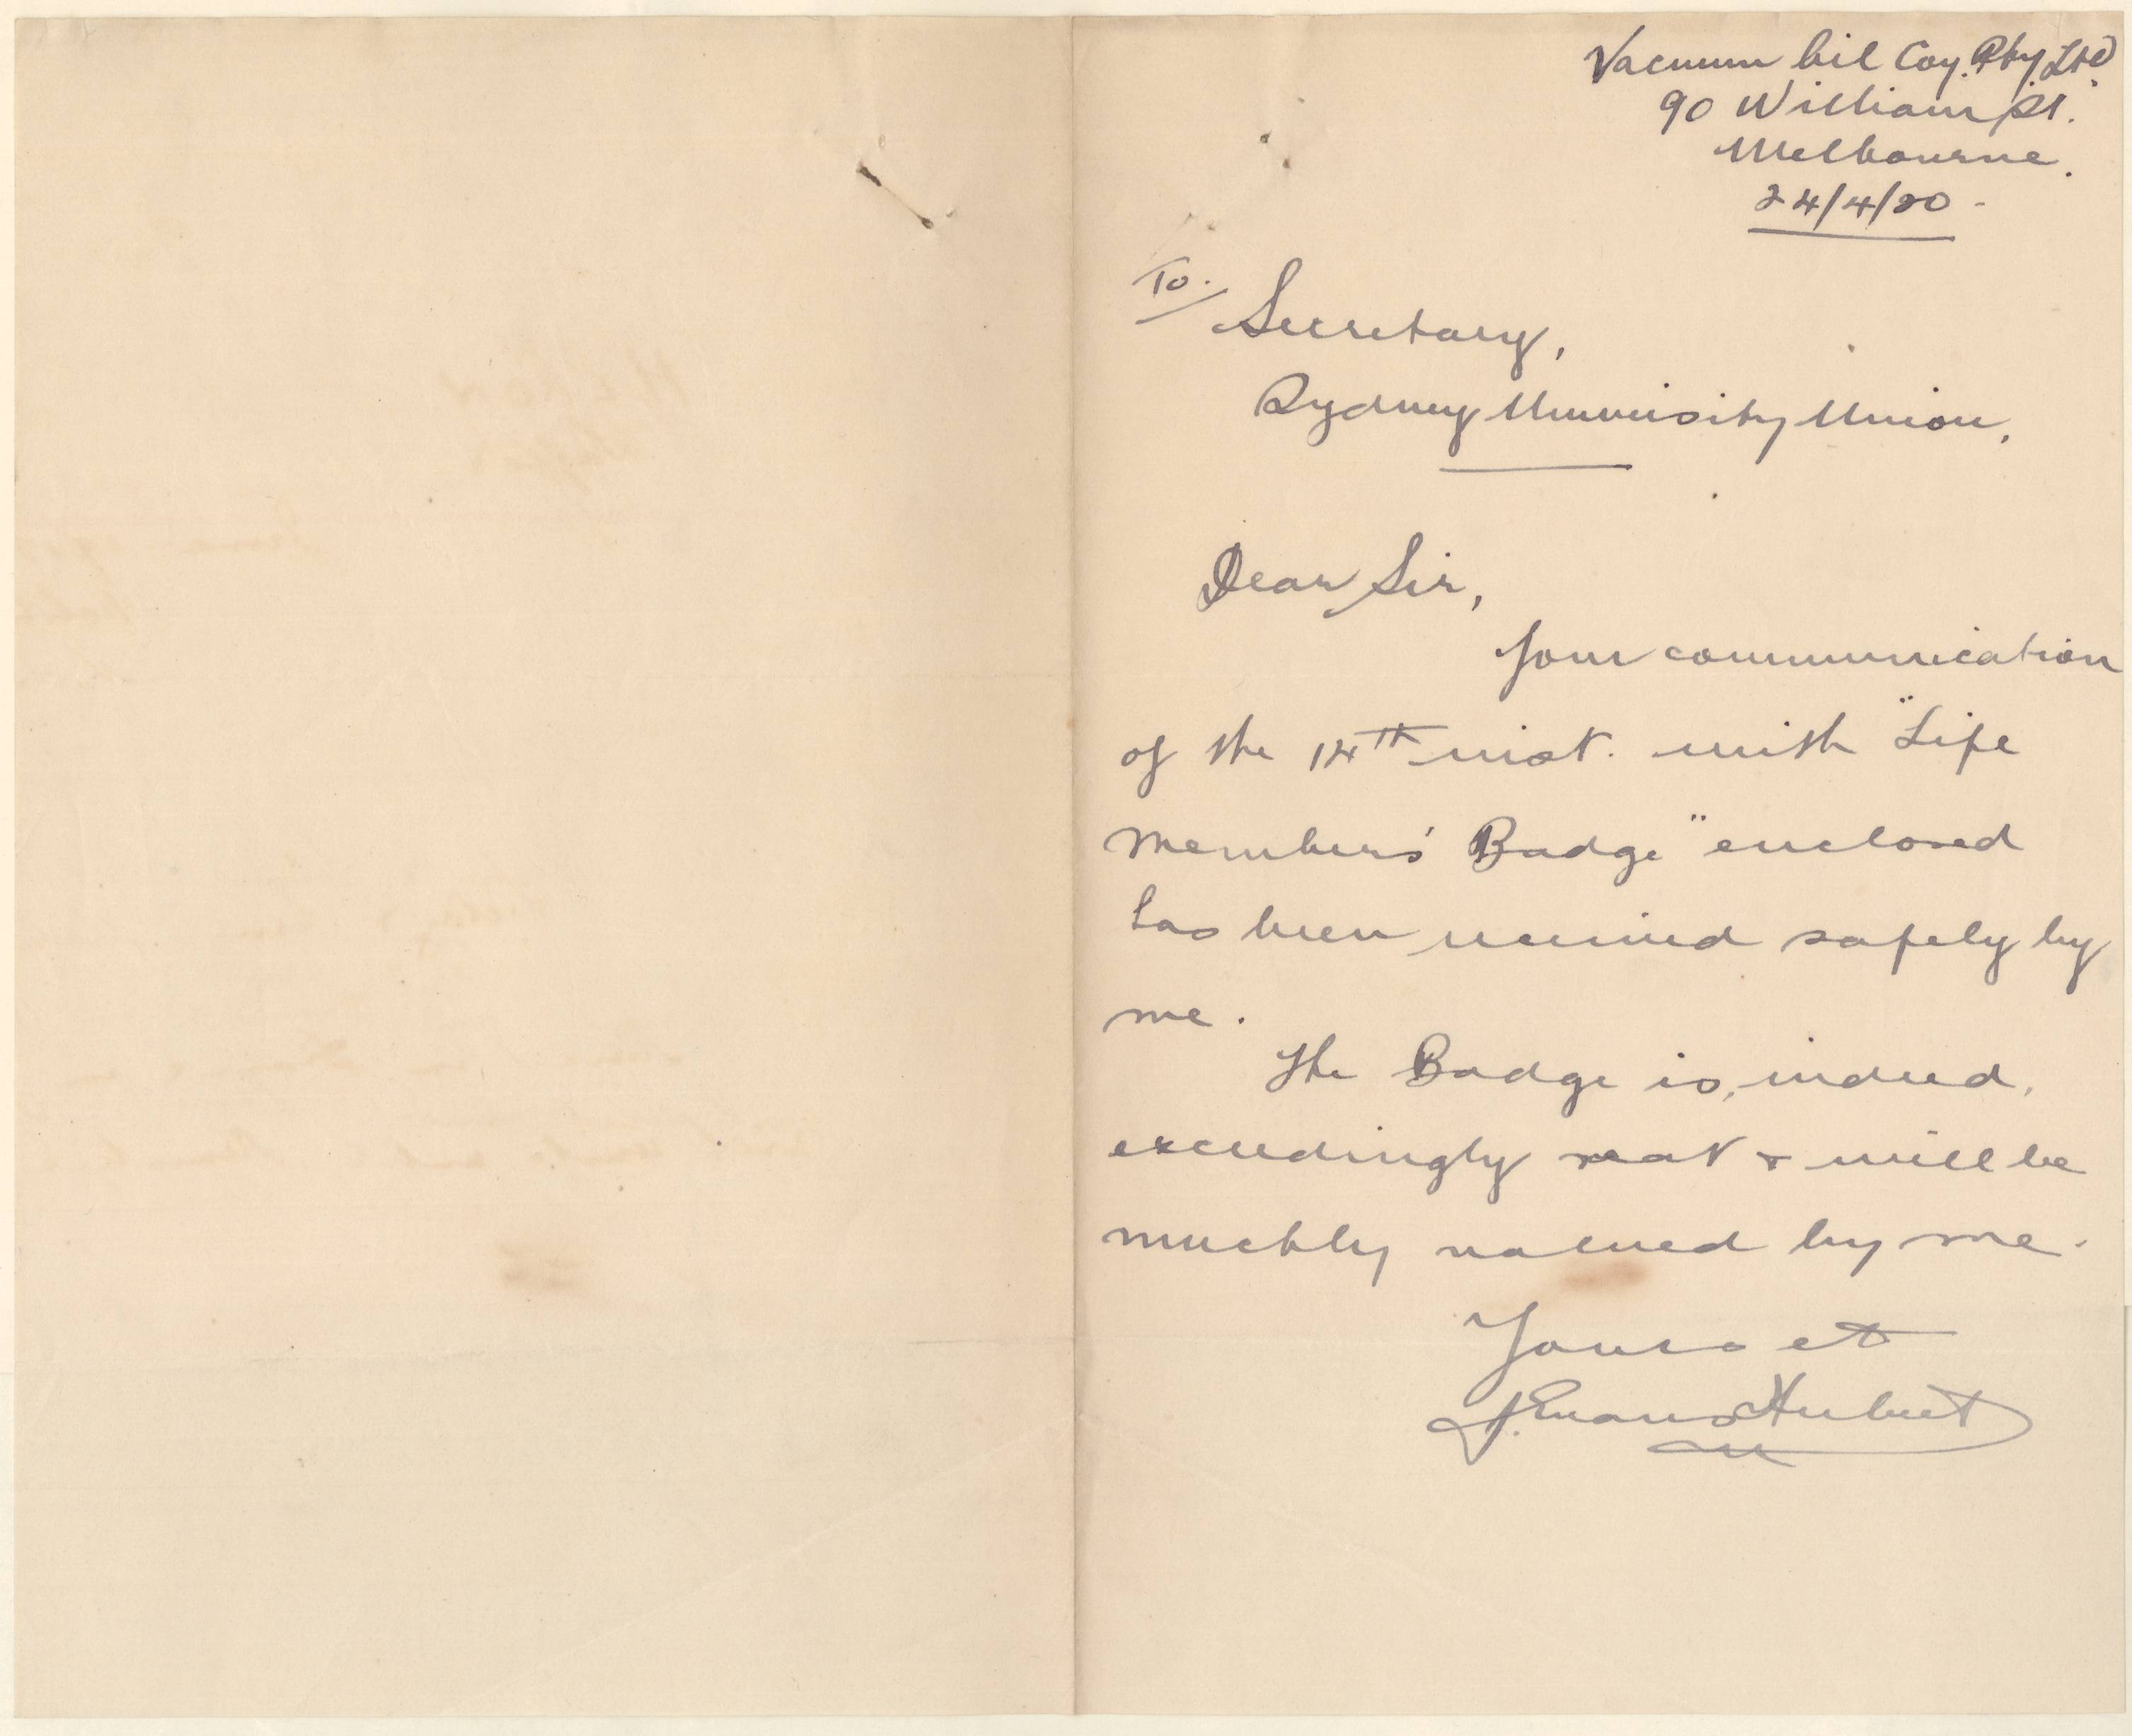 Vacuum Oil Coy. Pty. Ltd
90 William St.
Melbourne.
24/4/20.
To.
Secretary,
Sydney University Union.
Dear Sir,
Your communication
of the 14th inst. with "Life
Members' Badge" enclosed
has been received safely by
me.
The Badge is, indeed,
exceedingly neat & will be
muchly valued by me.
Yours etc
J. Evans Hubert